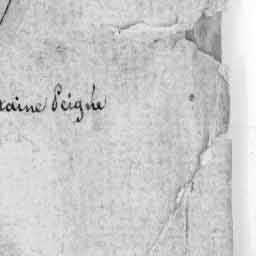 raine Peigne